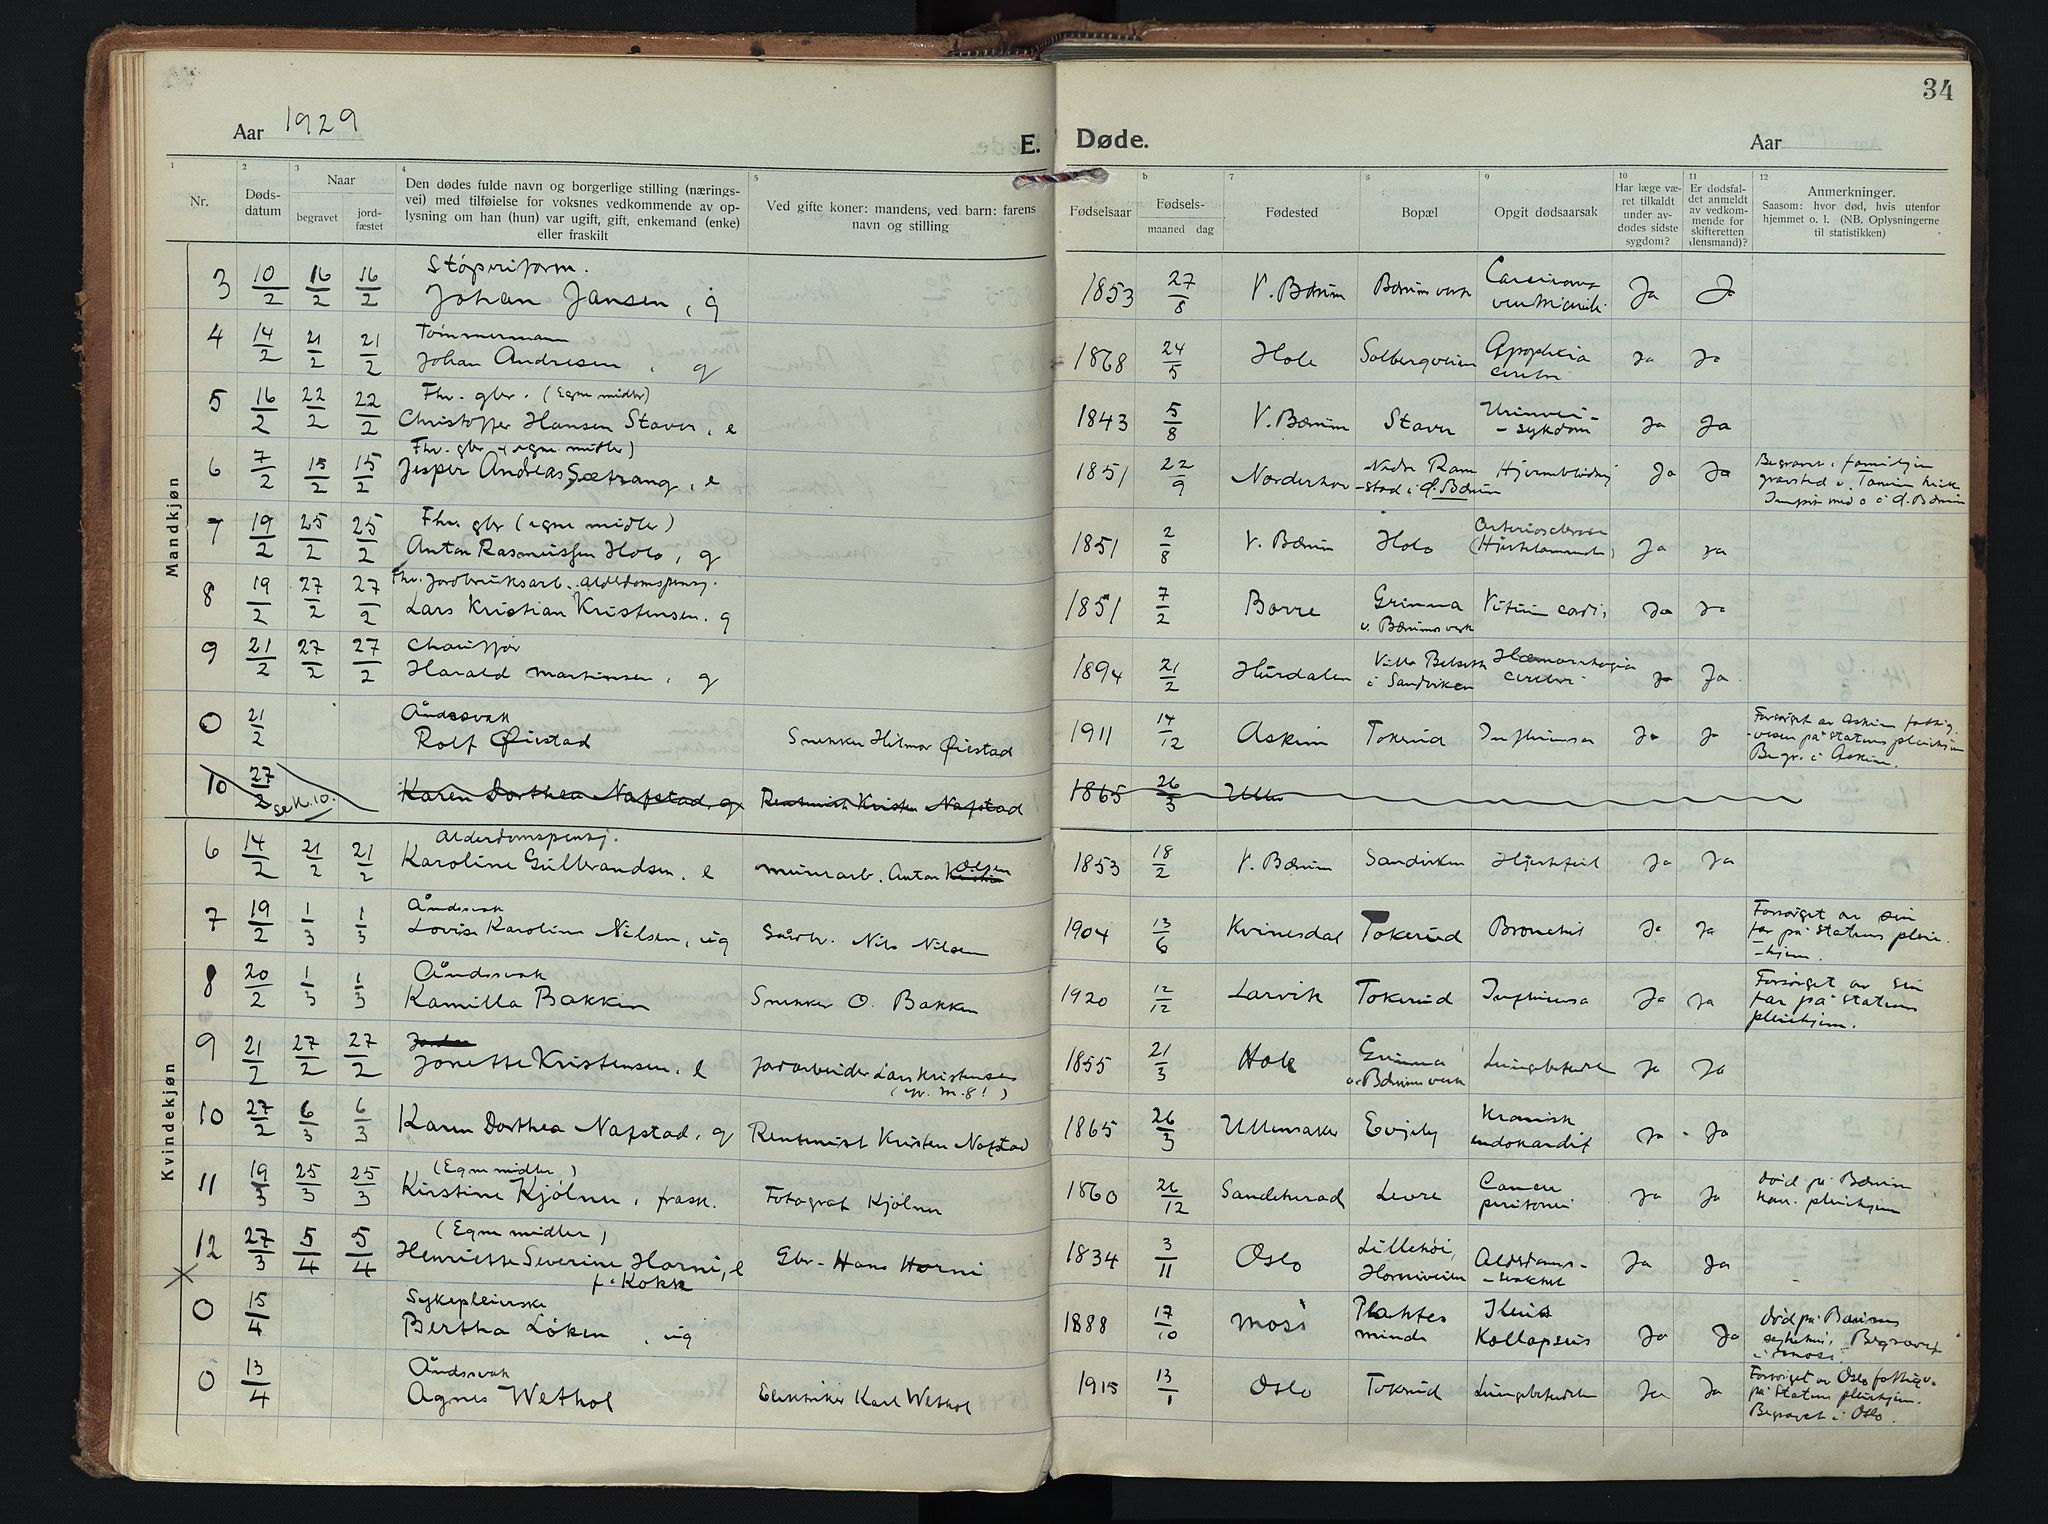 34
Aar 1929
E. Døde.
Aar
1
2
3
4
5
b
7
8
9
10
11
12
Nr.
Døds-
datum
Naar
begravet
jord-
fæstet
Den dødes fulde navn og borgerlige stilling (nærings-
vei) med tilføielse for voksnes vedkommende av op-
lysning om han (hun) var ugift, gift, enkemand (enke)
eller fraskilt
Ved gifte koner: mandens, ved barn: farens
navn og stilling
Fødselsaar
Fødsels-
maaned dag
Fødested
Bopæl
Opgit dødsaarsak
Har læge væ-
ret tilkaldt
under av-
dødes sidste
sygdom?
Er dødsfal-
det anmeldt
av vedkom-
mende for
skifteretten
(lensmand)?
Anmerkninger.
Saasom: hvor død, hvis utenfor
hjemmet o. l. (NB. Oplysningerne
til statistikken)
Mandkjøn
Støperiform.
3 10/2 16/2 16/2 Johan Jansen, g 1853 27/8 V. Bærum Bærumsverk Carcinoma ventriculi Ja Ja
Tømmermann
4 14/2 21/2 21/2 Johan Andresen, g 1868 24/5 Hole Solbergveien Apoplexia cerebri Ja Ja
Fhv. gbr. (Egne midler)
5 16/2 22/2 22/2 Christoffer Hansen Staver, e 1843 5/8 V. Bærum Staver Urinvei-sykdom Ja Ja
Fhv. gbr (egne midler)
6 7/2 15/2 15/2 Jesper Andreas Sætrang, e 1851 22/9 Norderhov Nedre Ramstad i Ø. Bærum Hjerneblødning Ja Ja Begravet i familiens gravsted v. Tanum kirke
Fhv. gbr (egne midler)
7 19/2 25/2 25/2 Anton Rasmussen Holo, g 1851 2/8 V. Bærum Holo Arteriosclerose Ja Ja
Fhv. jordbruksarb. alderdomspensj.
8 19/2 27/2 27/2 Lars Kristian Kristensen. g 1851 7/2 Borre Grinna v. Bærumsverk Vitium cordis Ja Ja
Chauffør
9 21/2 27/2 27/2 Harald Martinsen, g 1894 21/2 Hurdalen Villa Belset i Sandviken Hæmorrhagia cerebri Ja Ja
Åndssvak
0 21/2 Rolf Øiestad Snekker Hilmar Øiestad 1911 14/12 Askim Tokerud Influensa Ja Ja Forsørget av Askim fattigvesen på Statens pleiehjem Begr. i Askim.
10 27/2 se K. 10. Karen Dorthea Nafstad, g Rentenist Kristen Nafstad 1865 26/3 Ulle
Kvindekjøn
Alderdomspensj.
6 14/2 21/2 21/2 Karoline Gulbrandsen, e murarb. Anton Olsen 1853 18/2 V. Bærum Sandviken Hjertefeil Ja Ja
Åndssvak
7 19/2 1/3 1/3 Lovise Karoline Nilsen, ug Nils Nilsen 1904 13/6 Kvinesdal Tokerud Bronchit Ja Ja Forsørget av sin far på Statens pleie-hjem.
Åndssvak
8 20/2 1/3 1/3 Kamilla Bakken Snekker O. Bakken 1920 12/12 Larvik Tokerud Influensa Ja Ja Forsørget av sin far på Statens pleiehjem.
9 21/2 27/2 27/2 Jonette Kristensen, e Jordarbeider Lars Kristensen (gr. M. 8!) 1855 21/3 Hole Grinna v. Bærumsverk Lungebetendelse Ja Ja
10 27/2 6/3 6/3 Karen Dorthea Nafstad, g Rentenist Kristen Nafstad 1865 26/3 Ullensaker Evjeby Kronisk endokardit Ja Ja
(Egne midler)
11 19/3 25/3 25/3 Kirstine Kjølner, frask. Fotograf Kjølner 1860 26/12 Sandeherad Levre Cancer peritonei Ja Ja død på Bærum kom. pleiehjem
(Egne midler)
12 27/3 5/4 5/4 Henriette Severine Horni, e f. Kokk Gbr. Hans Horni 1834 3/11 Oslo Lillehøi, Horniveien Alderdoms-svakhet Ja Ja
Sykepleierske
0 15/4 Bertha Løken, ug 1888 17/10 Moss Plahtes minde Ileus Kollapsus Ja Ja død på Bærums sykehus, Begravet i Moss.
Åndssvak
0 13/4 Agnes Wethol Elektriker Karl Wethol 1915 13/1 Oslo Tokerud Lungebetendelse Ja Ja Forsørget av Oslo fattigv. på Statens pleiehjem. Begravet i Oslo.